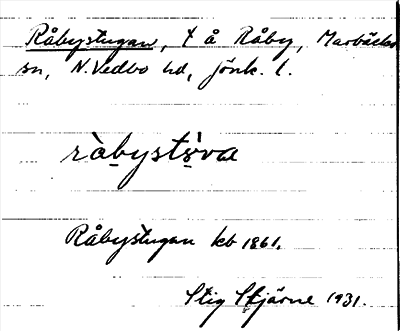 Råbystugan, t å Råby, Marbäcks
sn, N. Vedbo hd, Jönk. l.
ràbystòva
Råbystugan kb 1861.
Stig Stjärne 1931.